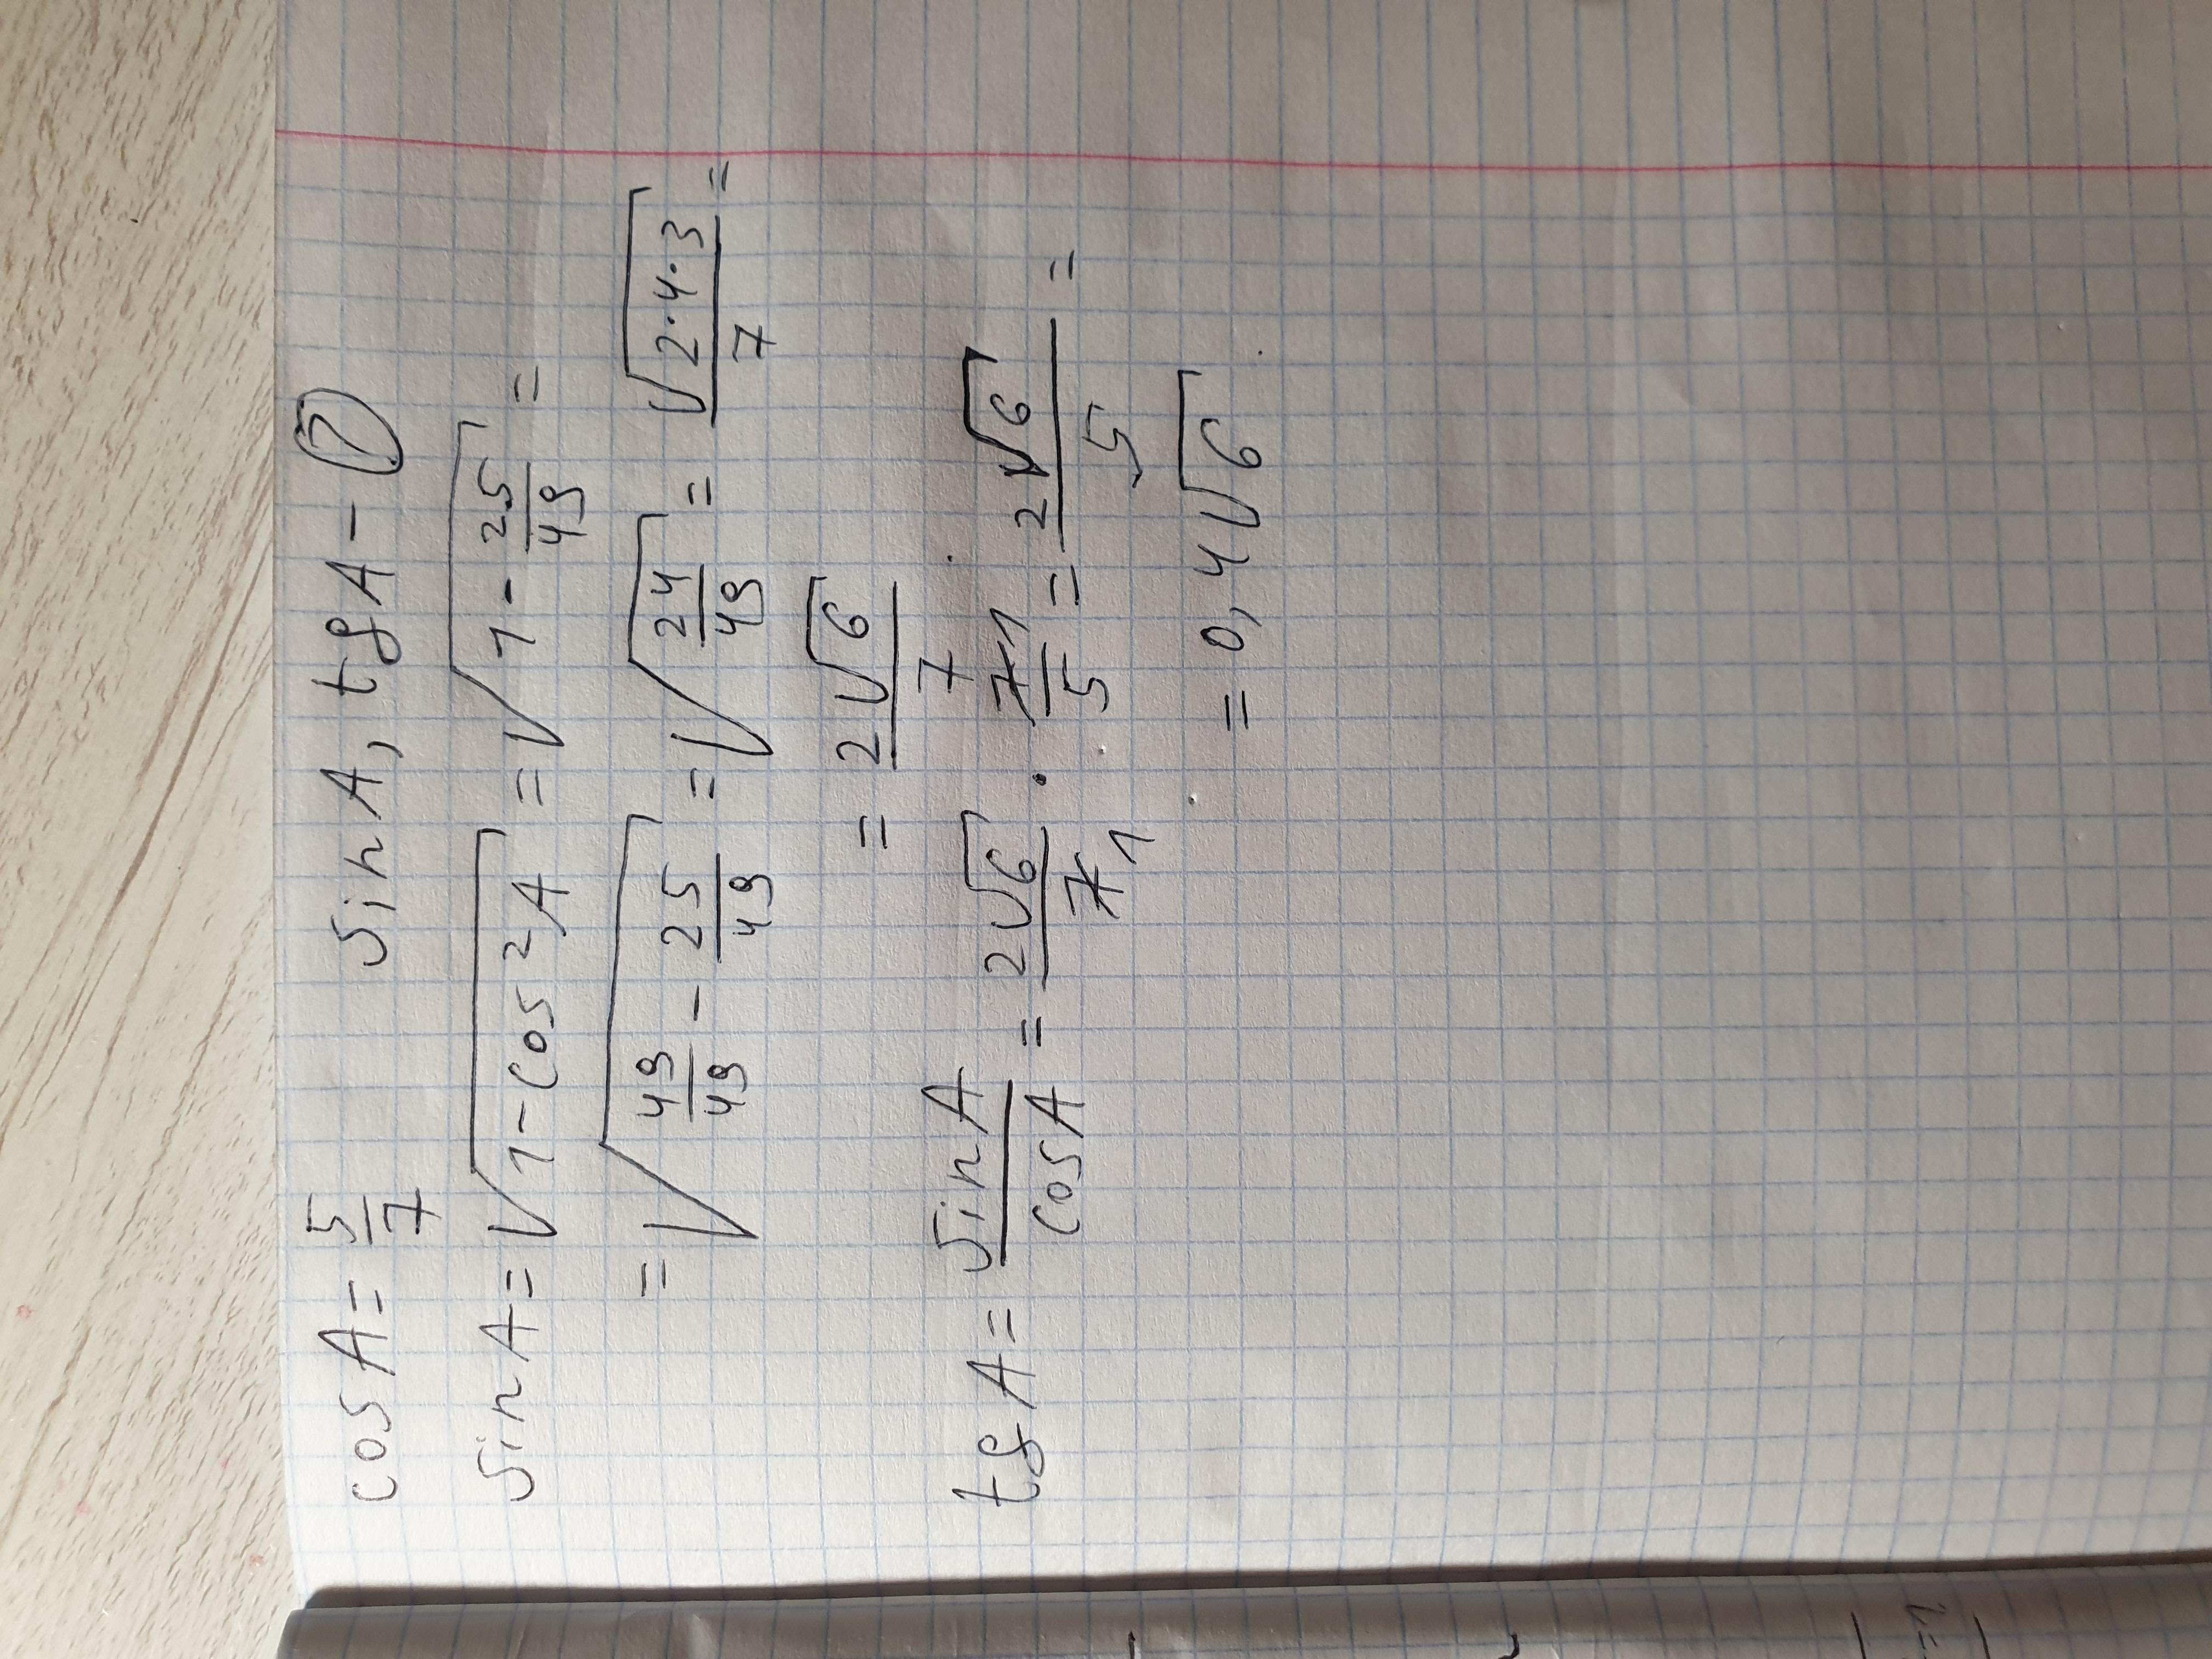 cos A = 5/7 sin A, tg A - ?
sin A = √(1 - cos²A) = √(1 - 25/49) =
= √(49/49 - 25/49) = √(24/49) = √(2·4·3)/7 =
= 2√6/7
tg A = sin A/cos A = 2√6/7 1 · 7 1/5 = 2√6/5 =
= 0,4√6